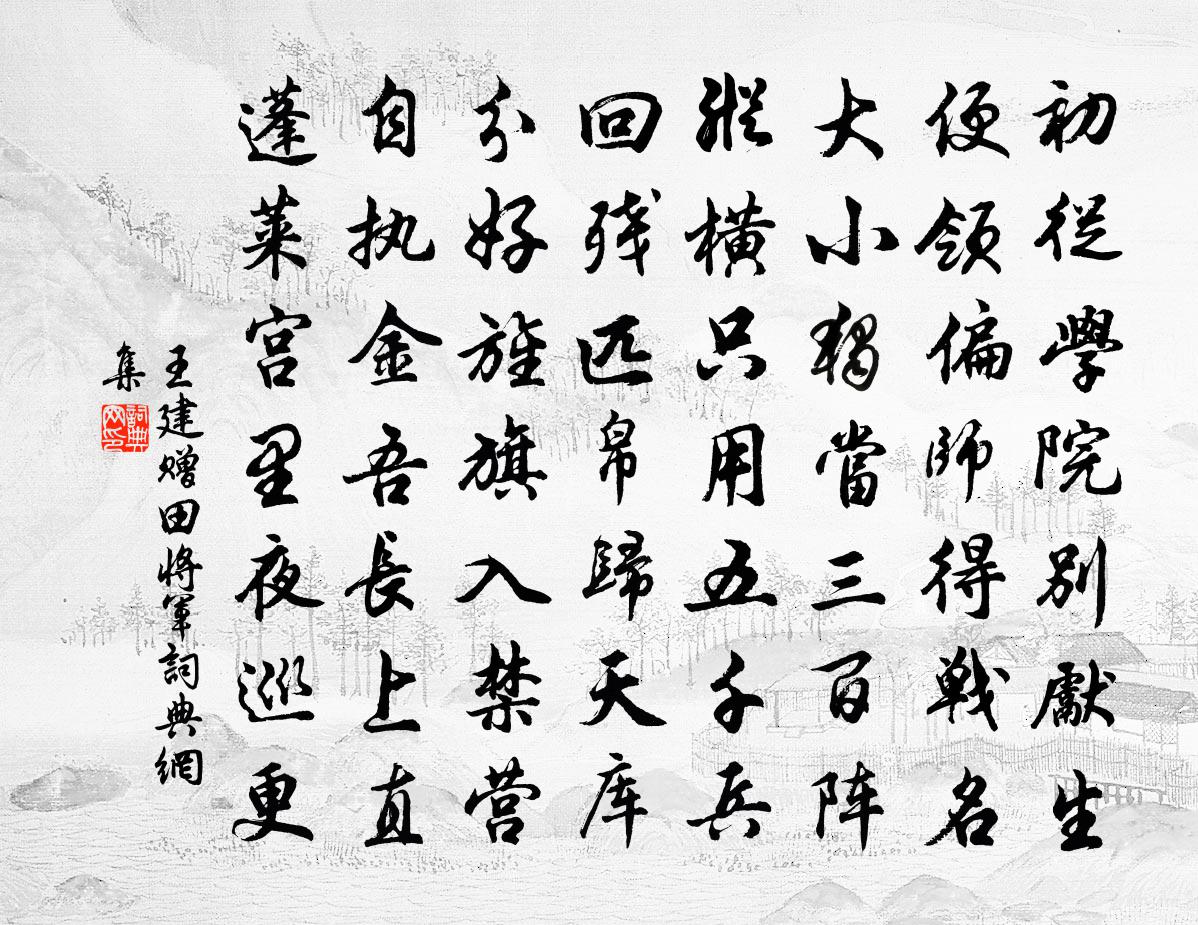 初從學院別獻生
便領偏師得戰名
大小獨當三百阵
縱橫只用五千兵
回残匹帛歸天库
分好旌旗入禁营
自执金吾長上直
蓬莱宫里夜巡更
王建赠田将军詞典網
集
詞典
网印